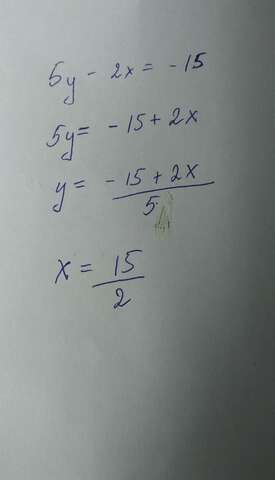 5y - 2x = -15
5y = -15 + 2x
y = (-15 + 2x)/5
x = 15/2